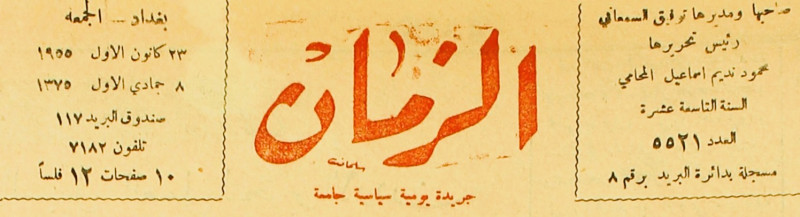 صاحبها ومديرها توفيق السمعاني
رئيس تحريرها
محمود نديم اسماعيل المحامي
السنة التاسعة عشرة
العدد ٥٥٢١
مسجلة بدائرة البريد برقم ٨
الزمان
جريدة يومية سياسية جامعة
بغداد — الجمعة
٢٣ كانون الاول ١٩٥٥
٨ جمادي الاول ١٣٧٥
صندوق البريد ١١٧
تلفون ٧١٨٢
١٠ صفحات ١٢ فلساً